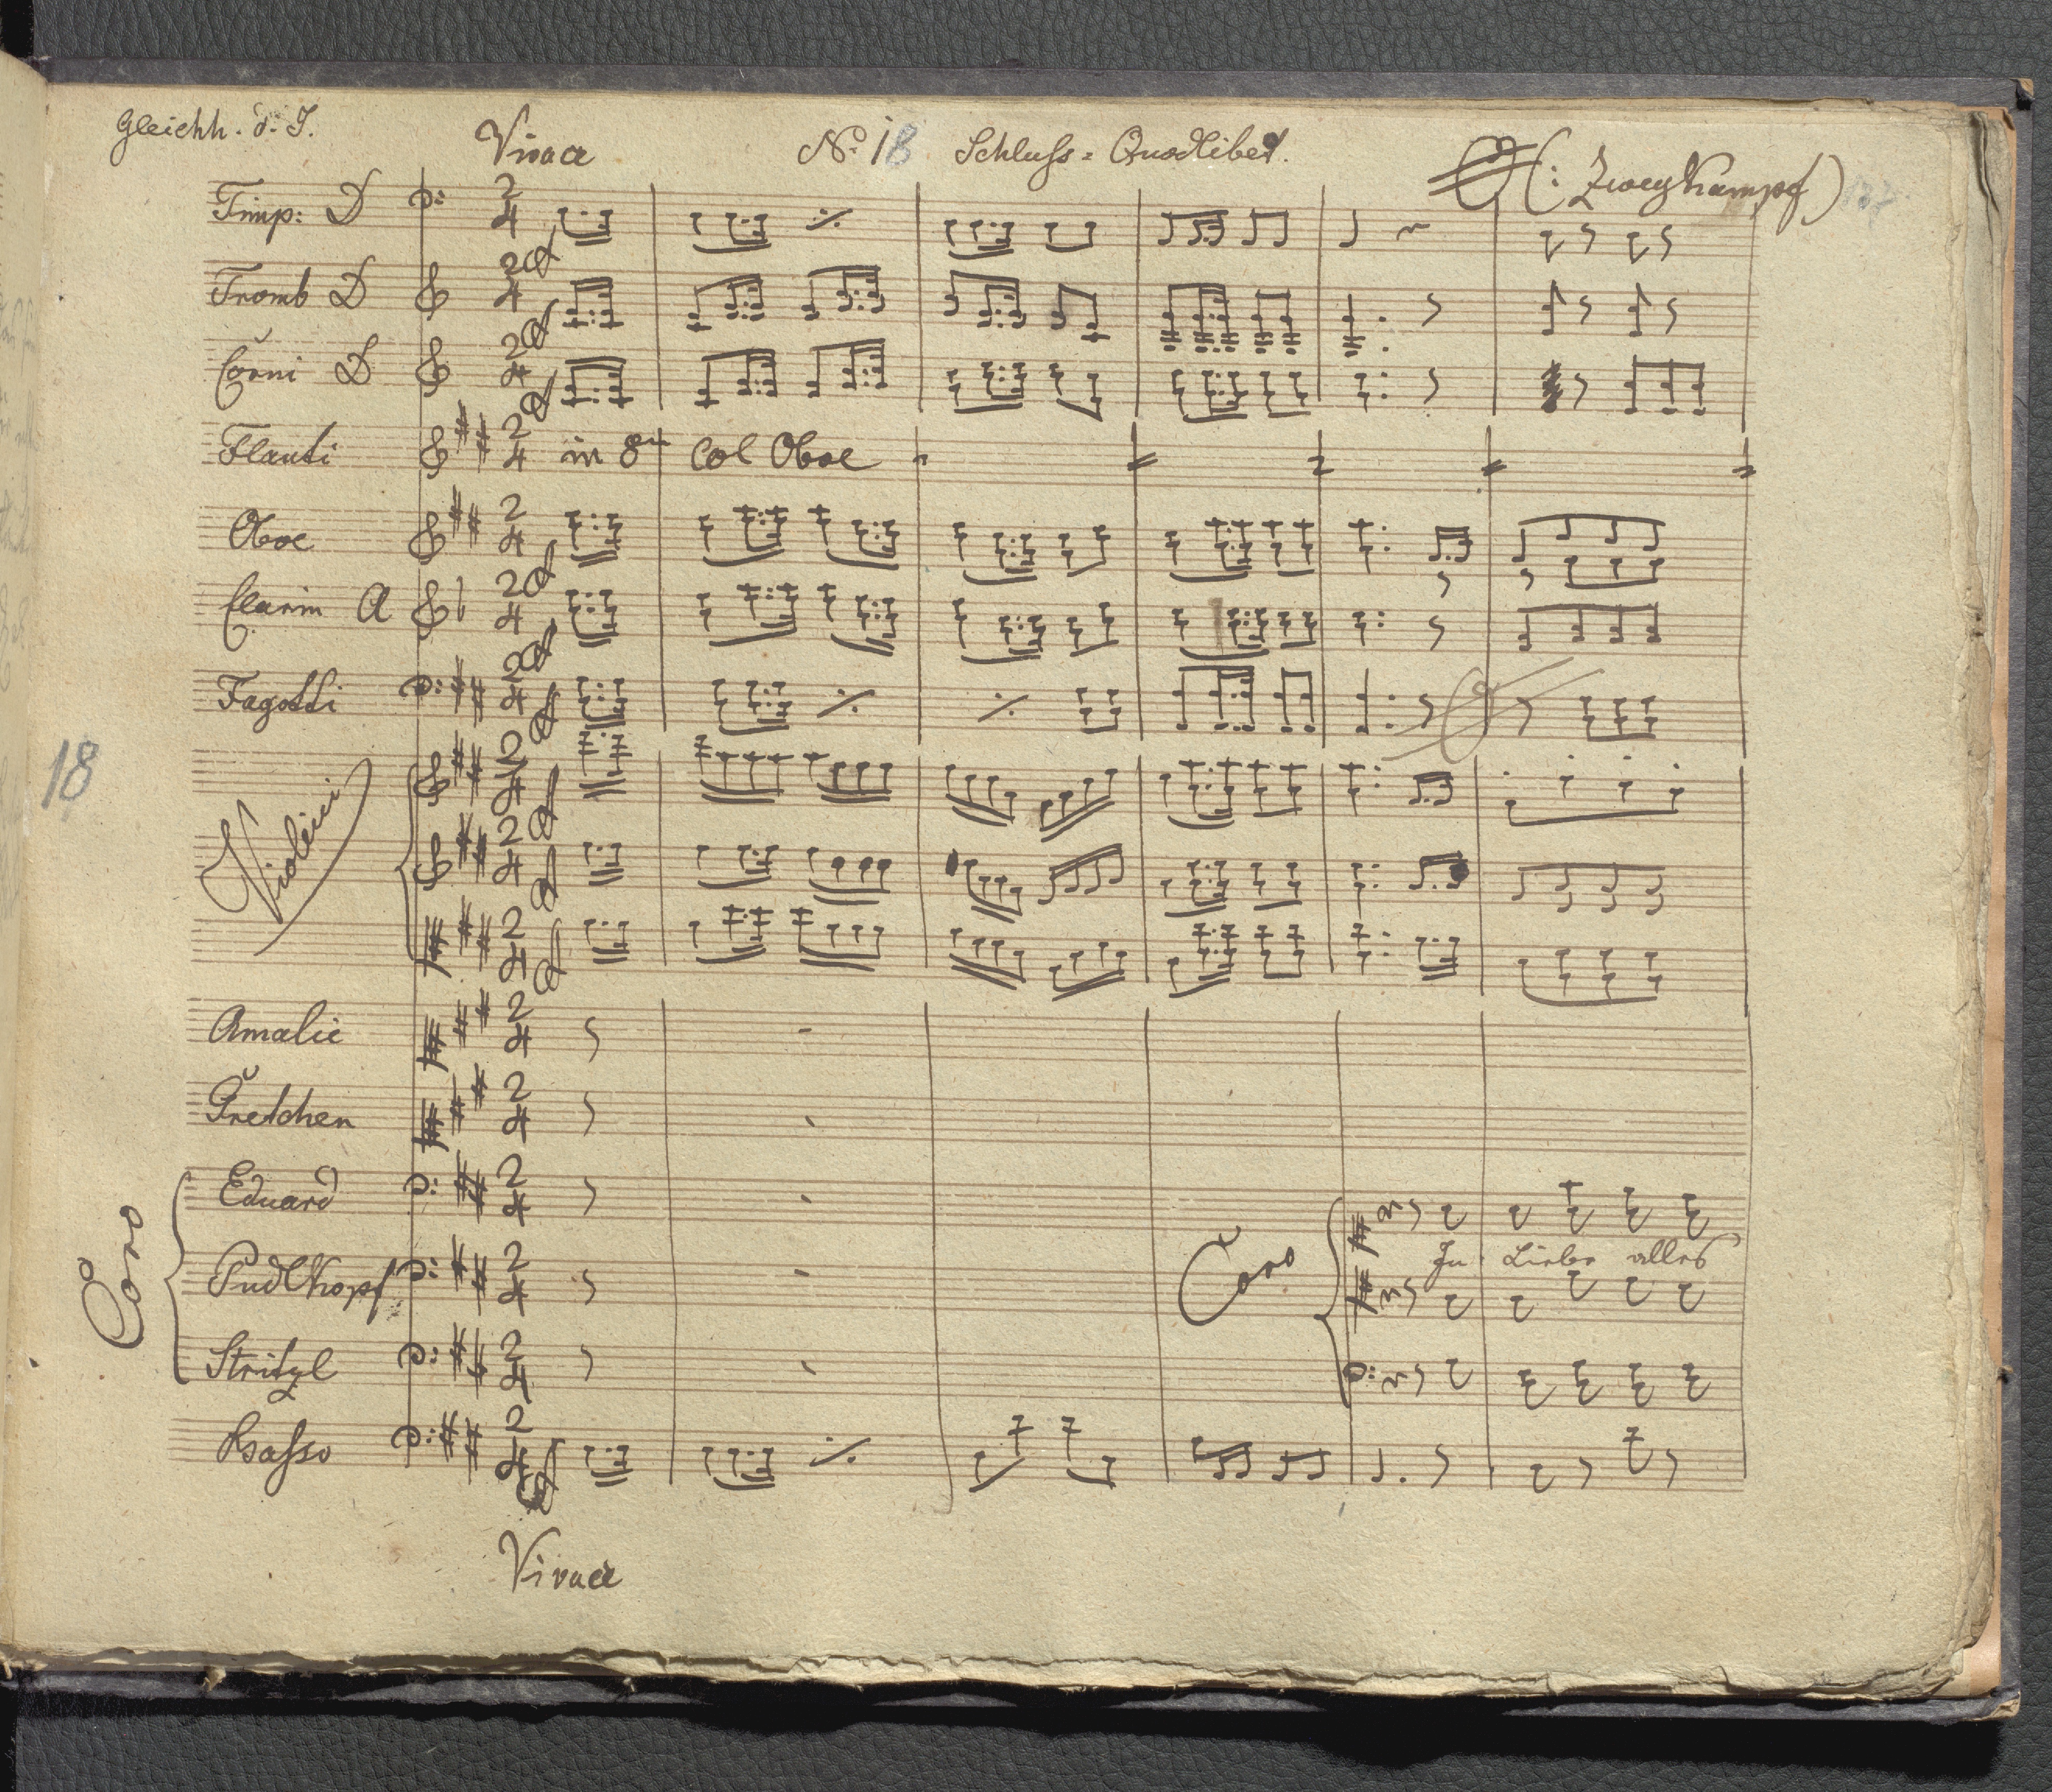 Gleichh. d. J.
Vivace
No. 18 Schluſs = Quodlibet.
(: Zweykampf)
137
Timp: D
Tromb D
Corni D
Flauti in 8va col Oboe
Oboe
Clarin A
Fagotti
18
Violini
Amalie
Gretchen
Coro
Eduard
Pudlkopf
Coro
In Liebe alles
Stritzl
Baſso
Vivace